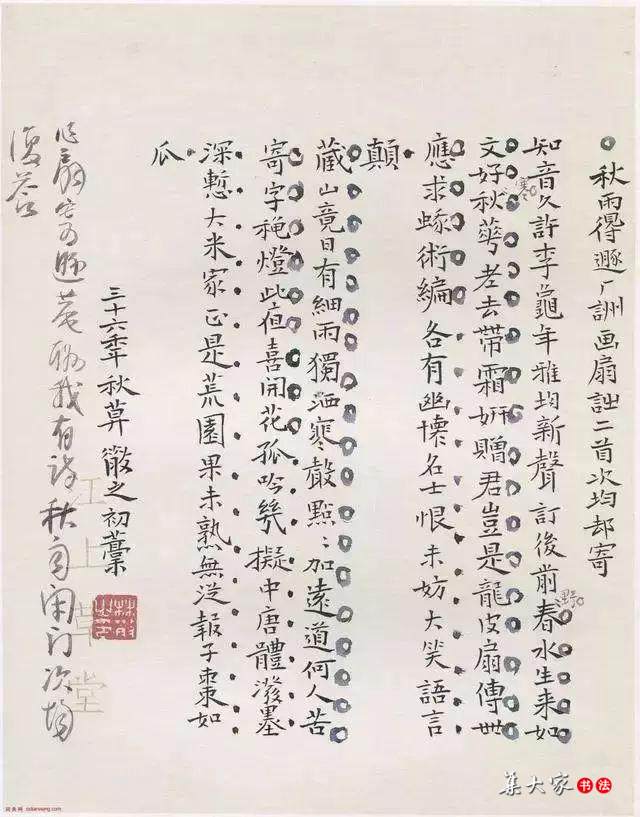 秋雨得遯厂詶画扇詩二首次均却寄
知音久許李龜年雅均新聲訂後前春水生来如
野
文好秋華老去帶霜妍贈君豈是龍皮扇傳世
寒
應求術編各有幽懷名士恨未妨大笑語言
顛
藏山竟日有細雨獨洒寒聲點:加遠道何人苦
寄字秾燈此夜喜開花孤吟幾擬中唐體潑墨
深慙大米家正是荒園果未熟無從報子棗如
瓜
三十六年秋徵之初藁
扇寄遯菴我有詩秋雨閉门次均
復答
江上草堂
集大家书法